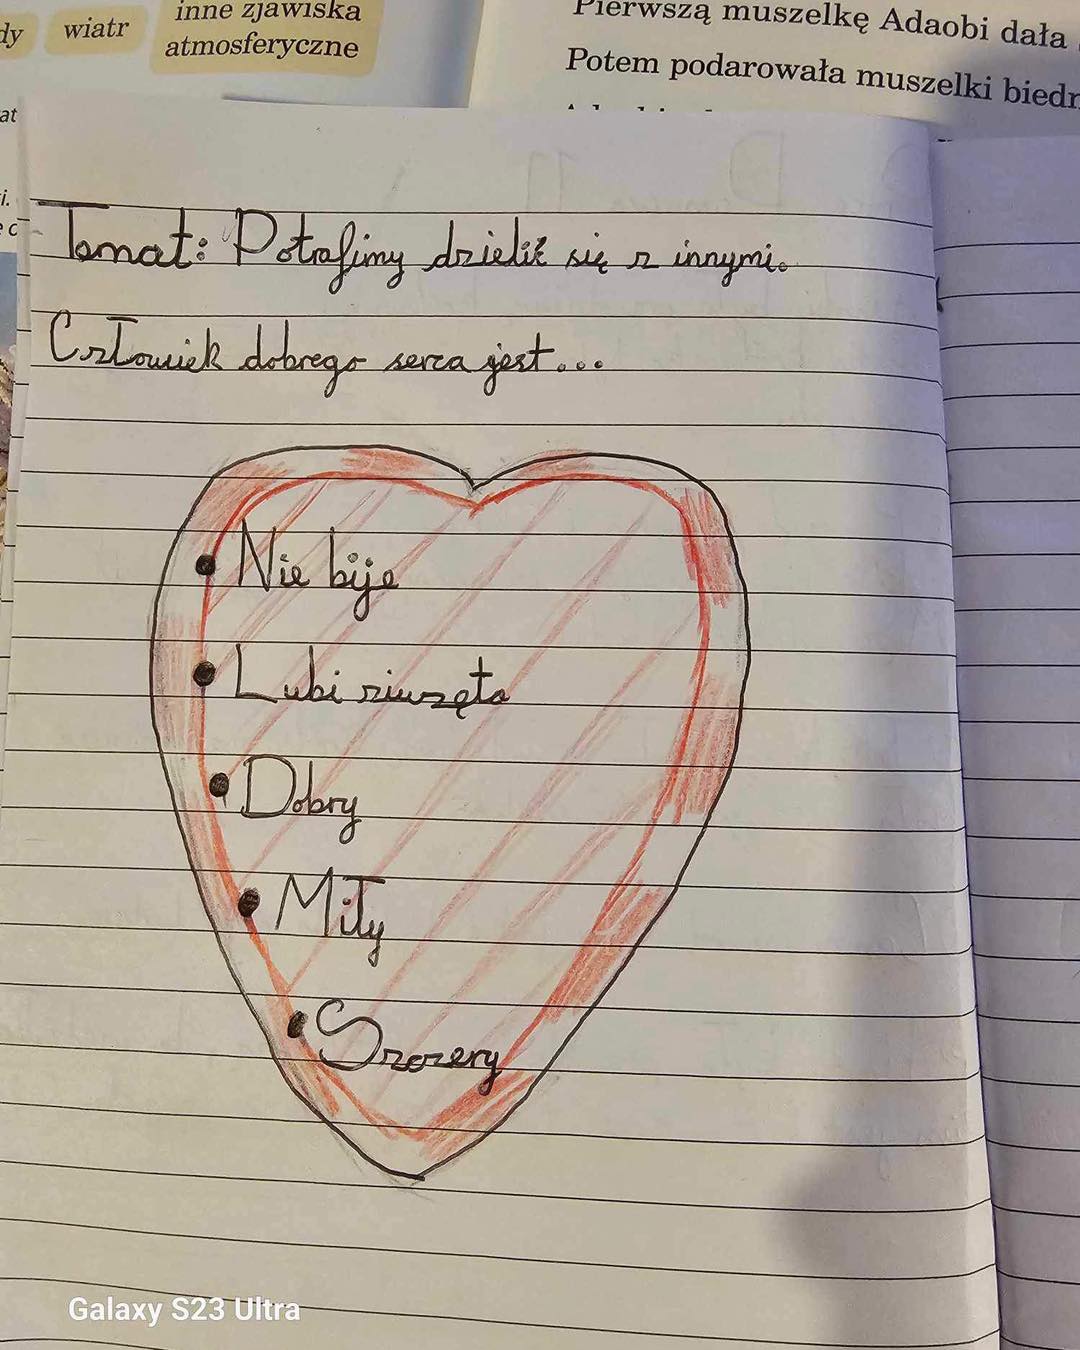 dy
wiatr
inne zjawiska
atmosferyczne
Pierwszą muszelkę Adaobi dała
Potem podarowała muszelki biedn
at
i.
e c
Temat: Potrafimy dzielić się z innymi.
Człowiek dobrego serca jest...
• Nie bije
• Lubi ziwzęta
• Dobry
• Miły
• Szczery
Galaxy S23 Ultra